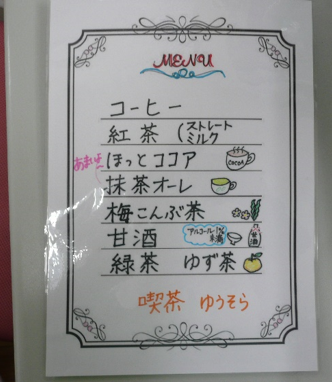 MENU
コーヒー
紅茶 (ストレート
ミルク
あまーい ほっとココア COCOA
抹茶オーレ
梅こんぶ茶
甘酒 アルコール1%未満 甘酒
緑茶 ゆず茶
喫茶 ゆうそら